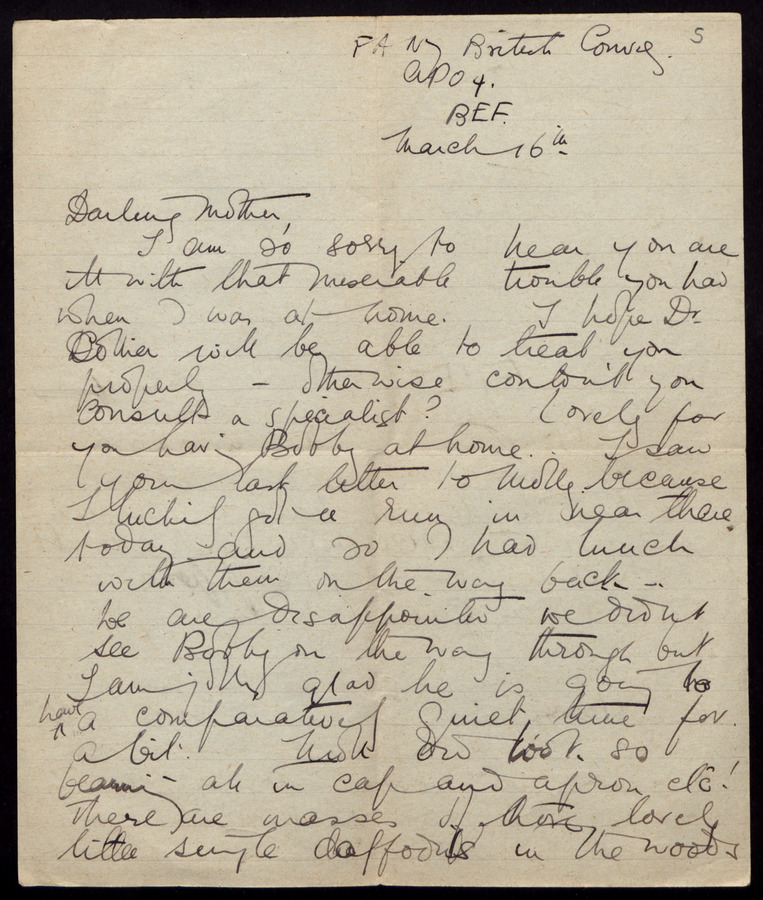 5
FANY British Convoy.
APO 4.
BEF.
March 16th
Darling Mother,
I am so sorry to hear you are
ill with that miserable trouble you had
when I was at home. I hope Dr
will be able to treat you
properly – otherwise couldn't you
consult a specialist? Lovely for
you having Bobby at home. I saw
your last letter to Molly because
I luckily got a run in near there
today and so I had lunch
with them on the way back –
We are disappointed we didnt
see Bobby on the way through but
I am jolly glad he is going to
have a comparatively quiet time for
a bit. Moll did look so
all in cap and apron etc!
There are masses of those lovely
little single daffodils in the woods